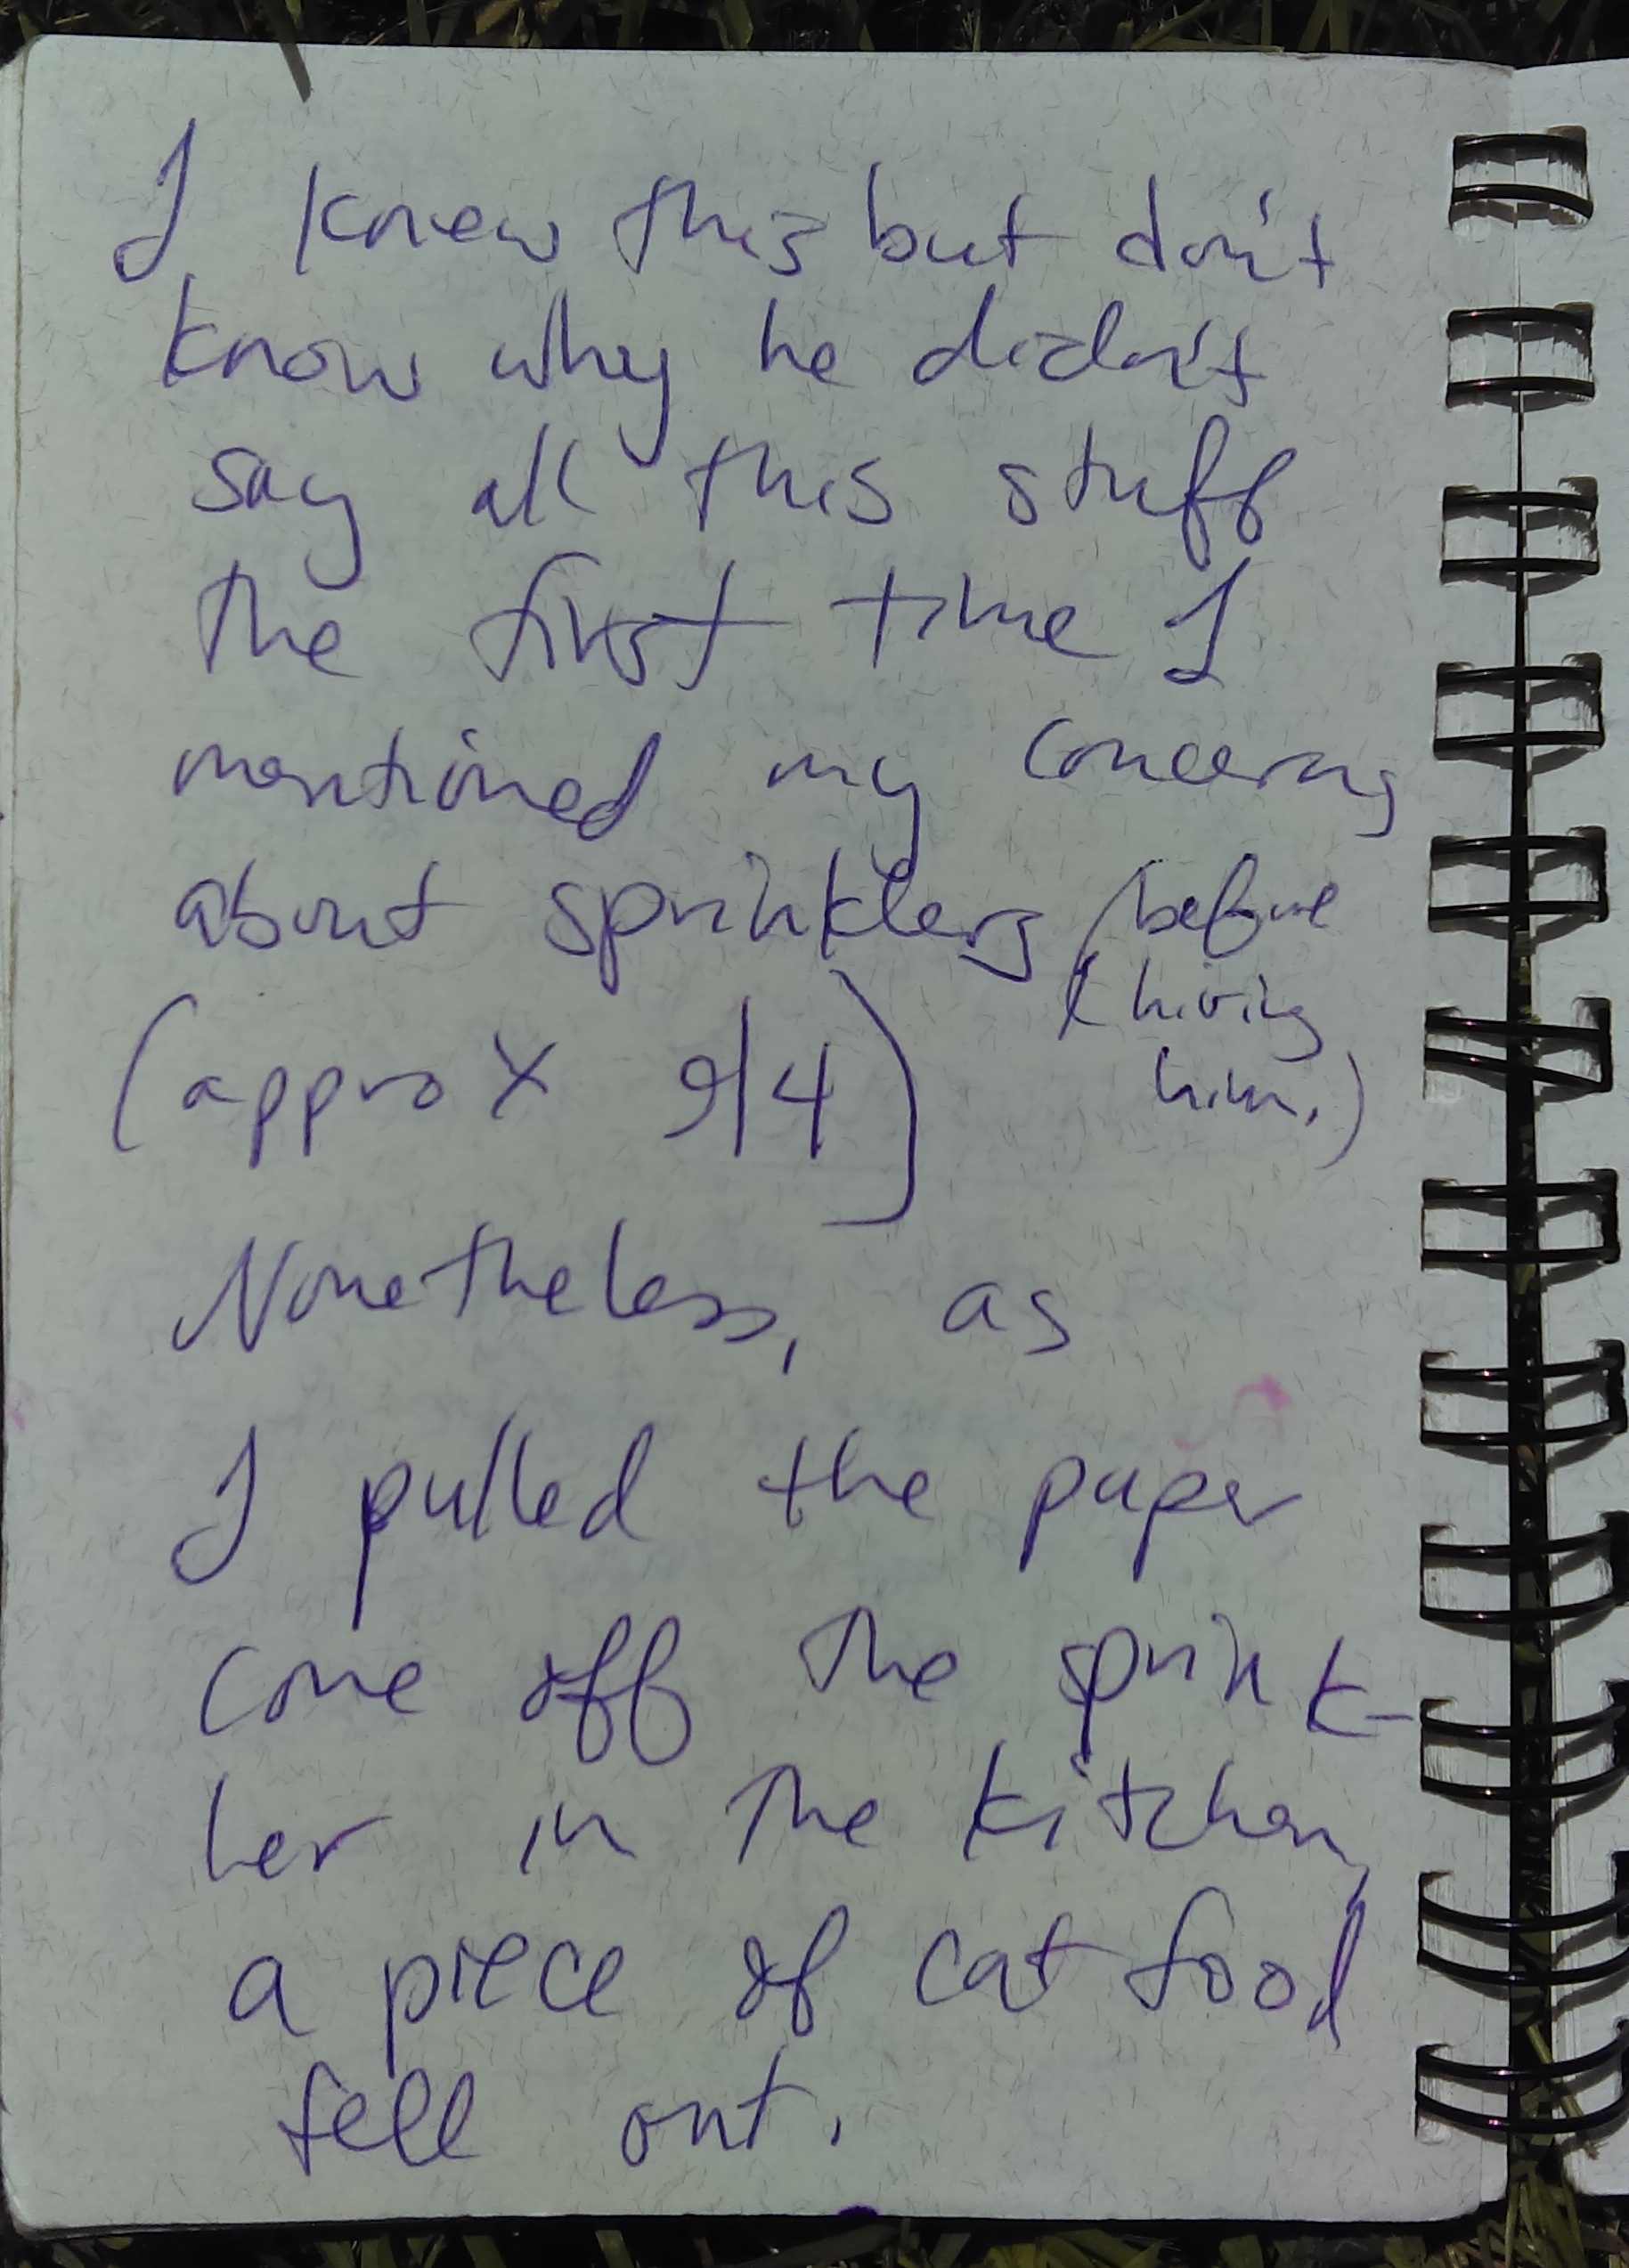 I knew this but don't
know why he didn't
say all this stuff
the first time I
mentioned my concerns
about sprinklers (before
hiring
him.)
(approx 9/4)
Nonetheless, as
I pulled the paper
cone off the sprink-
ler in the kitchen,
a piece of cat food
fell out.